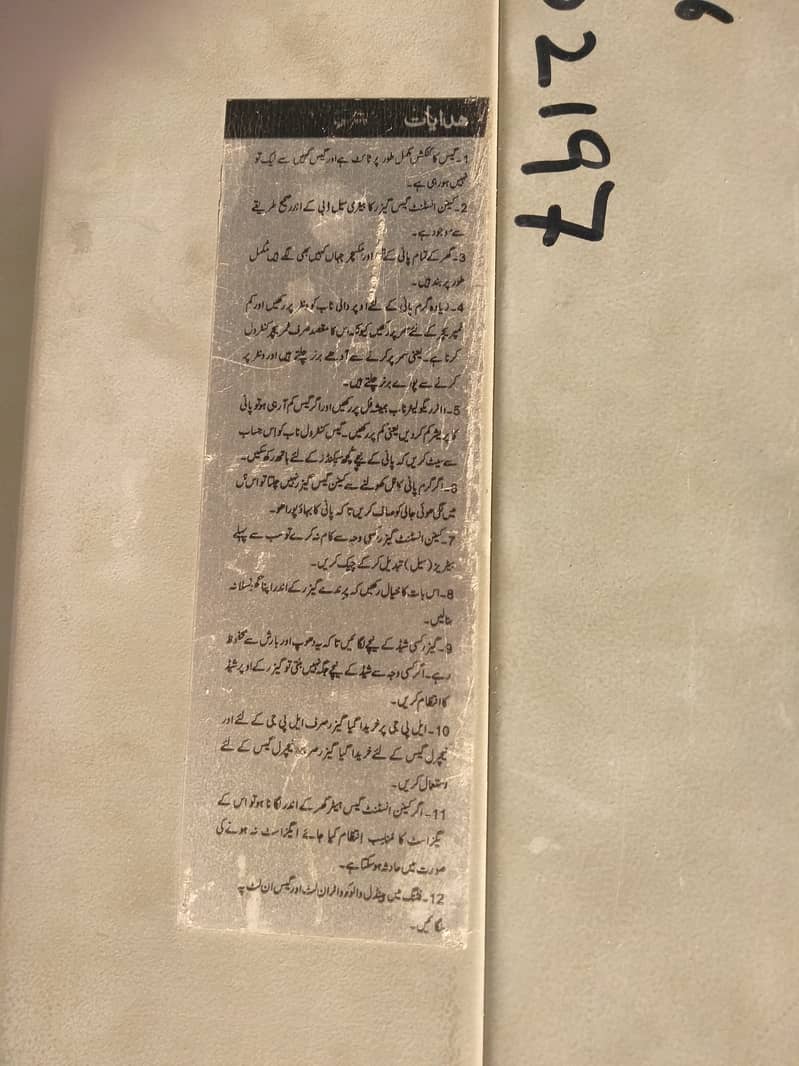 ھدایات
1۔ گیس کا کنکشن مکمل طور پر ٹائٹ ہے اور گیس کہیں سے لیک تو
نہیں ہو رہی ہے۔
2۔ کینن انسٹنٹ گیس گیزر کا بیٹری سیل ڈبی کے اندر صحیح طریقے
سے موجود ہے۔
3۔ گھر کے تمام پانی کے اور مکسچر جہاں کہیں بھی لگے ہیں مکمل
طور پر بند ہیں۔
4۔ زیادہ گرم پانی کے لئے اوپر والی ناب کو ونٹر پر رکھیں اور کم
ٹمپریچر کے لئے سمر پر رکھیں کیونکہ اس کا مقصد صرف ٹمپریچر کنٹرول
کرنا ہے۔ یعنی سمر پر کرنے سے آدھے برنر چلتے ہیں اور ونٹر پر
کرنے سے پورے برنر چلتے ہیں۔
5۔ واٹر ریگولیٹر ناب ہمیشہ فل پر رکھیں اور اگر گیس کم آرہی ہو تو پانی
کا پریشر کم کردیں یعنی کم پر رکھیں۔ گیس کنٹرول ناب کو اس حساب
سے سیٹ کریں کہ پانی کے نیچے کچھ سیکنڈز کے لئے ہاتھ رکھ سکیں۔
6۔ اگر گرم پانی کا نل کھولنے سے کینن گیس گیزر نہیں چلتا تو اس نل
میں لگی ھوئی جالی کو صاف کریں تاکہ پانی کا بہاؤ پورا ھو۔
7۔ کینن انسٹنٹ گیزر کسی وجہ سے کام نہ کرے تو سب سے پہلے
بیٹریز (سیل) تبدیل کر کے چیک کریں۔
8۔ اس بات کا خیال رکھیں کہ پرندے گیزر کے اندر اپنا گھونسلا نہ
بنالیں۔
9۔ گیزر کسی شیڈ کے نیچے لگائیں تاکہ یہ دھوپ اور بارش سے محفوظ
رہے۔ اگر کسی وجہ سے شیڈ کے نیچے جگہ نہیں بنتی تو گیزر کے اوپر شیڈ
کا انتظام کریں۔
10۔ ایل پی جی پر خریدا گیا گیزر صرف ایل پی جی کے لئے اور
نیچرل گیس کے لئے خریدا گیا گیزر صرف نیچرل گیس کے لئے
استعمال کریں۔
11۔ اگر کینن انسٹنٹ گیس ہیٹر گھر کے اندر لگانا ہو تو اس کے
ایگزاسٹ کا مناسب انتظام کیا جائے ایگزاسٹ نہ ہونے کی
صورت میں حادثہ ہوسکتا ہے۔
12۔ فٹنگ میں ہینڈل والو کو واٹر ان لٹ اور گیس ان لٹ پہ
لگائیں۔
2197